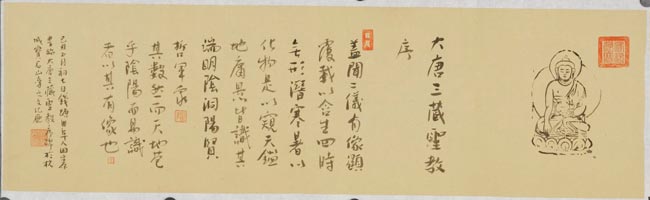 大唐三藏聖教
序
蓋聞二儀有像顯
覆載以含生四時
無形潛寒暑以
化物是以窺天鑑
地庸愚皆識其
端明陰洞陽賢
哲罕窮
其數然而天地苞
乎陰陽而易識
者以其有像也
月初七日錢塘
大唐三藏聖教